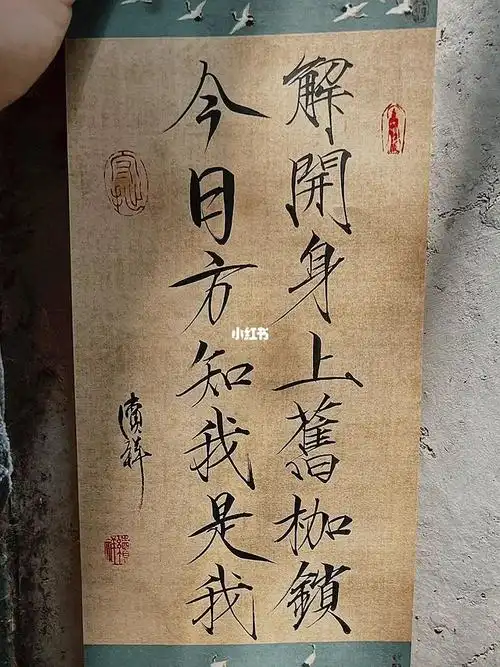 解開身上舊枷鎖
今日方知我是我
小红书